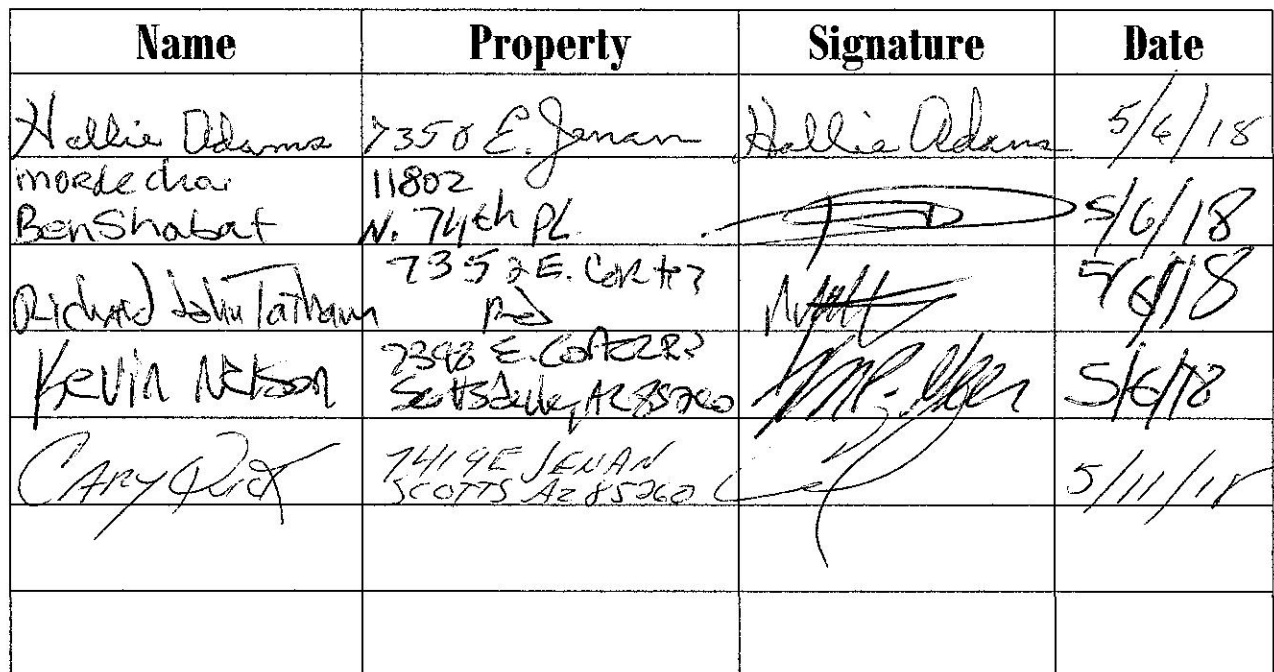 Name Property Signature Date
Hallie Adams 7350 E. Jenan Hallie Adams 5/6/18
mordechai 11802
BenShabat N. 74th PL. 5/6/18
Richard John Tatham 7352 E. 5/6/18
Kevin Nelson 7398 E.
Scottsdale, AZ 85260 5/6/18
Cary 7419 E JENAN
SCOTTS AZ 85260 5/11/18